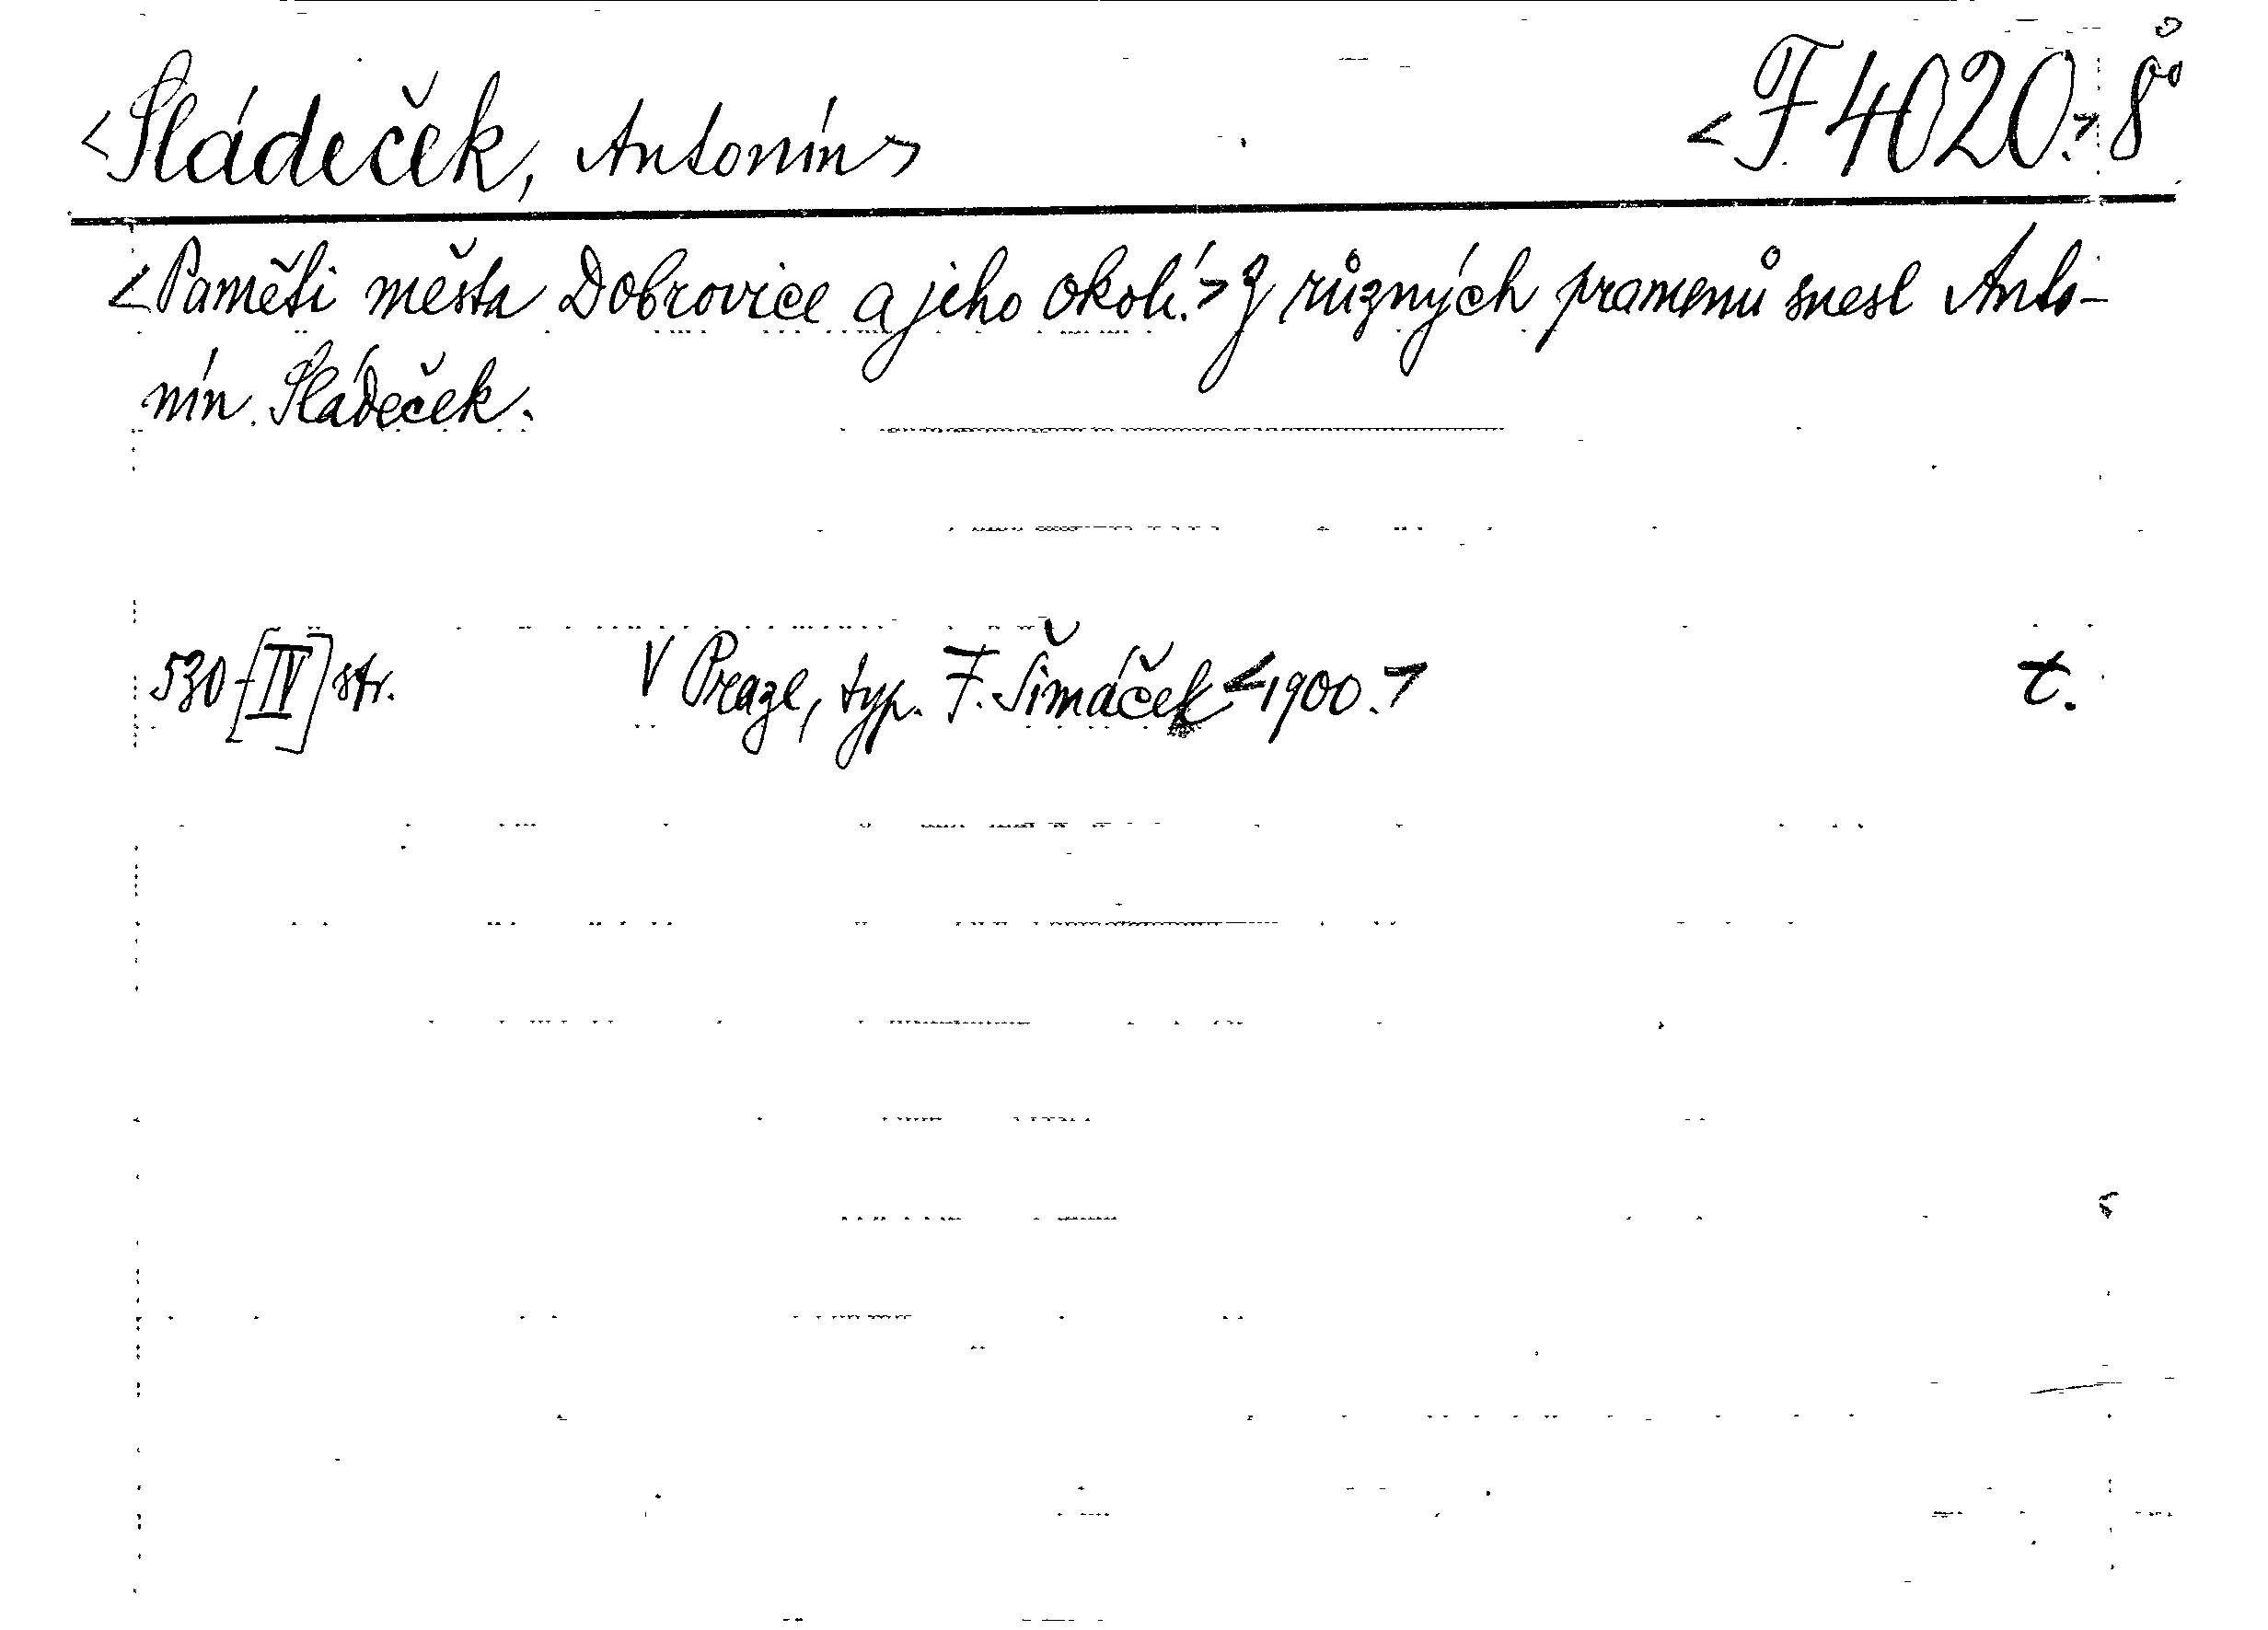 <Sládeček, Antonín> <F 4020.> 8°
<Paměti města Dobrovice a jeho okolí.> Z různých pramenů snesl Anto-
nín Sládeček.
530-[IV] str. V Praze, typ. F. Šimáček <1900.> t.